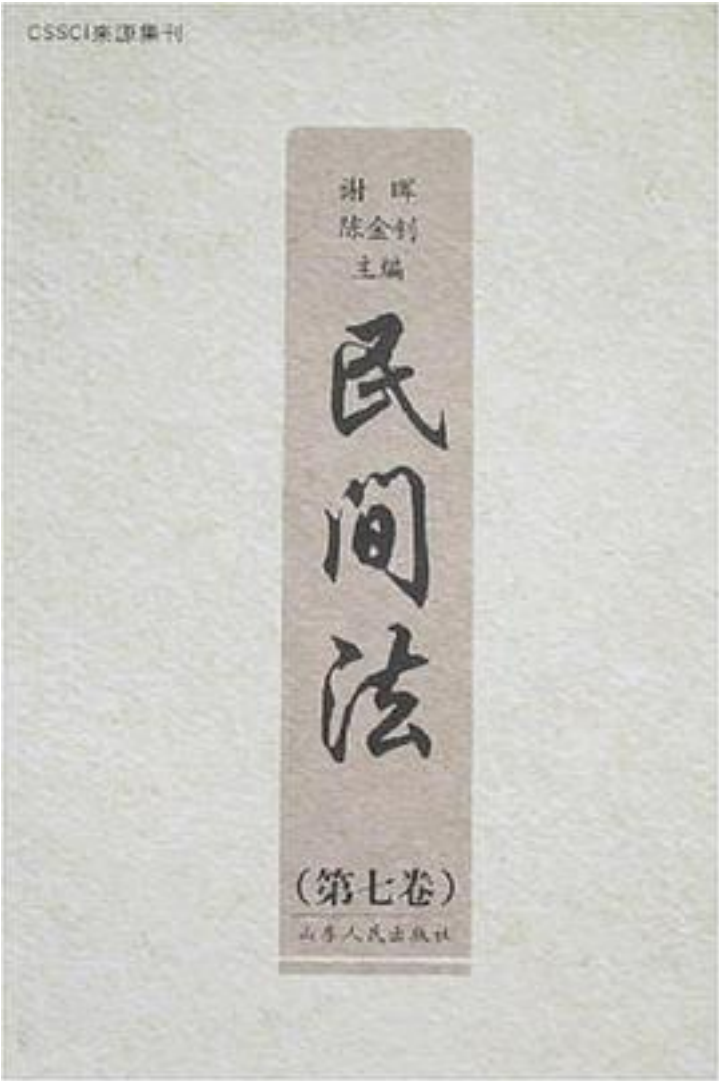 CSSCI来源集刊
谢 晖
陈金钊
主编
民间法
(第七卷)
山东人民出版社